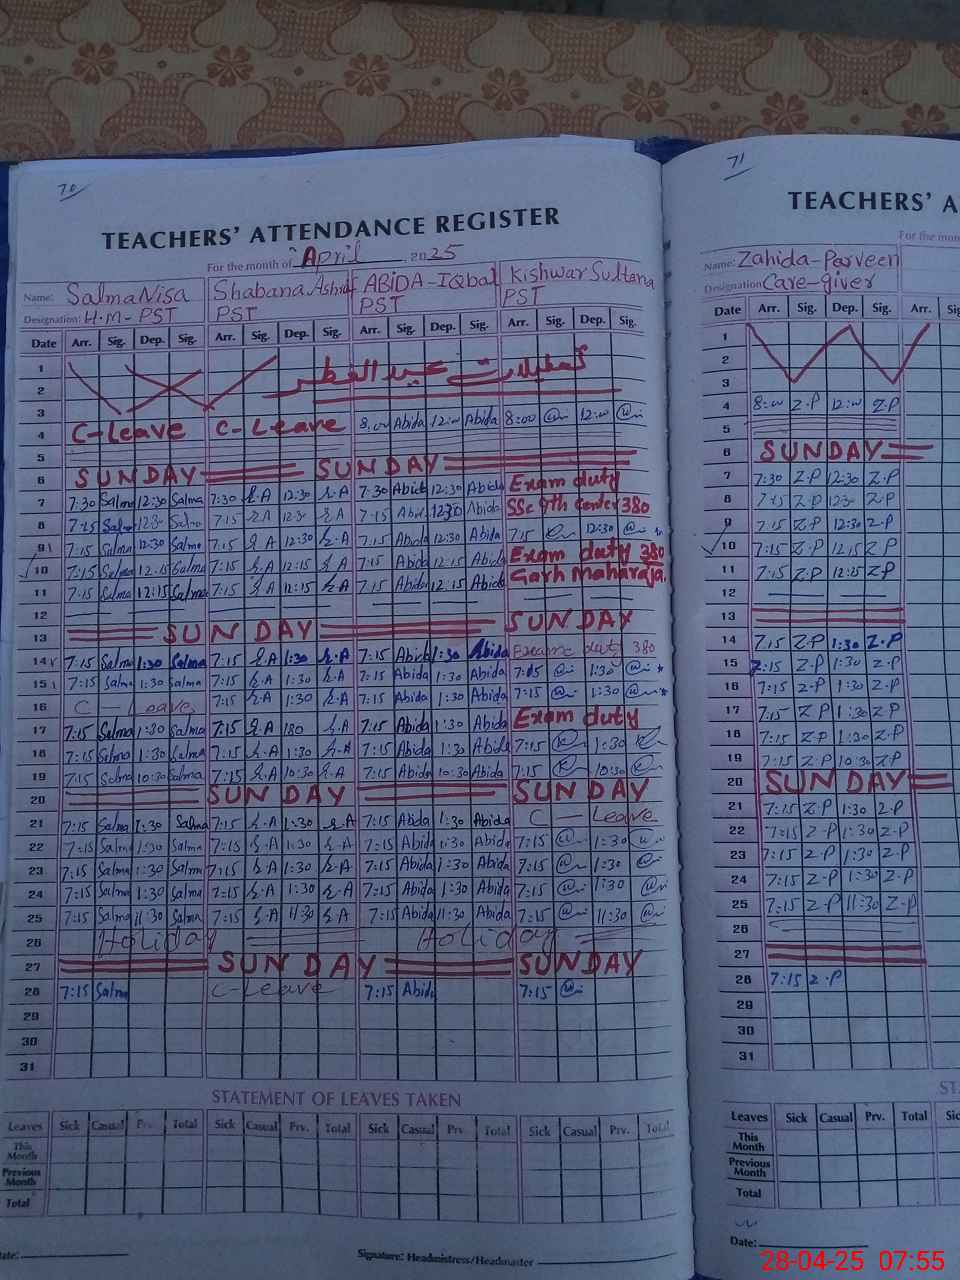 70
TEACHERS' ATTENDANCE REGISTER
For the month of April 2025
Name: Salma Nisa Shabana Ashraf ABiDA-IQbal Kishwar Sultana
Designation: H.M-PST PST PST PST
Date Arr. Sig. Dep. Sig. Arr. Sig. Dep. Sig. Arr. Sig. Dep. Sig. Arr. Sig. Dep. Sig.
1 تعطیلات عید الفطر
2
3
4 C-Leave C-Leave 8:00 Abida 12:00 Abida 8:00 12:00
5
6 SUNDAY SUNDAY
7 7:30 Salma 12:30 Salma 7:30 S.A 12:30 S.A 7:30 Abida 12:30 Abida Exam duty
8 7:15 Salma 12:30 Salma 7:15 S.A 12:30 S.A 7:15 Abida 12:30 Abida SSc 9th Center 380
9 7:15 Salma 12:30 Salma 7:15 S.A 12:30 S.A 7:15 Abida 12:30 Abida 7:15 12:30
10 7:15 Salma 12:15 Salma 7:15 S.A 12:15 S.A 7:15 Abida 12:15 Abida Exam duty 380
11 7:15 Salma 12:15 Salma 7:15 S.A 12:15 S.A 7:15 Abida 12:15 Abida Garh Maharaja.
12
13 SUNDAY SUNDAY
14 7:15 Salma 1:30 Salma 7:15 S.A 1:30 S.A 7:15 Abida 1:30 Abida duty 380
15 7:15 Salma 1:30 Salma 7:15 S.A 1:30 S.A 7:15 Abida 1:30 Abida 7:15 1:30
16 C-Leave 7:15 S.A 1:30 S.A 7:15 Abida 1:30 Abida 7:15 1:30
17 7:15 Salma 1:30 Salma 7:15 S.A 130 S.A 7:15 Abida 1:30 Abida Exam duty
18 7:15 Salma 1:30 Salma 7:15 S.A 1:30 S.A 7:15 Abida 1:30 Abida 7:15 1:30
19 7:15 Salma 10:30 Salma 7:15 S.A 10:30 S.A 7:15 Abida 10:30 Abida 7:15 10:30
20 SUNDAY SUNDAY
21 7:15 Salma 1:30 Salma 7:15 S.A 1:30 S.A 7:15 Abida 1:30 Abida C-Leave
22 7:15 Salma 1:30 Salma 7:15 S.A 1:30 S.A 7:15 Abida 1:30 Abida 7:15 1:30
23 7:15 Salma 1:30 Salma 7:15 S.A 1:30 S.A 7:15 Abida 1:30 Abida 7:15 1:30
24 7:15 Salma 1:30 Salma 7:15 S.A 1:30 S.A 7:15 Abida 1:30 Abida 7:15 1:30
25 7:15 Salma 11:30 Salma 7:15 S.A 11:30 S.A 7:15 Abida 11:30 Abida 7:15 11:30
26 Holiday Holiday
27 SUNDAY SUNDAY
28 7:15 Salma C-Leave 7:15 Abida 7:15
29
30
31
STATEMENT OF LEAVES TAKEN
Leaves Sick Casual Prv. Total Sick Casual Prv. Total Sick Casual Prv. Total Sick Casual Prv. Total
This Month
Previous Month
Total
Date:
Signature: Headmistress/Headmaster
71
TEACHERS' A
For the mon
Name: Zahida-Parveen
Designation Care-giver
Date Arr. Sig. Dep. Sig. Arr.
1
2
3
4 8:00 Z.P 12:00 Z.P
5
6 SUNDAY
7 7:30 Z.P 12:30 Z.P
8 7:15 Z.P 12:30 Z.P
9 7:15 Z.P 12:30 Z.P
10 7:15 Z.P 12:15 Z.P
11 7:15 Z.P 12:15 Z.P
12
13
14 7:15 Z.P 1:30 Z.P
15 7:15 Z.P 1:30 Z.P
16 7:15 Z.P 1:30 Z.P
17 7:15 Z.P 1:30 Z.P
18 7:15 Z.P 1:30 Z.P
19 7:15 Z.P 10:30 Z.P
20 SUNDAY
21 7:15 Z.P 1:30 Z.P
22 7:15 Z.P 1:30 Z.P
23 7:15 Z.P 1:30 Z.P
24 7:15 Z.P 1:30 Z.P
25 7:15 Z.P 11:30 Z.P
26
27
28 7:15 Z.P
29
30
31
ST
Leaves Sick Casual Prv. Total Sic
This Month
Previous Month
Total
Date:
28-04-25 07:55